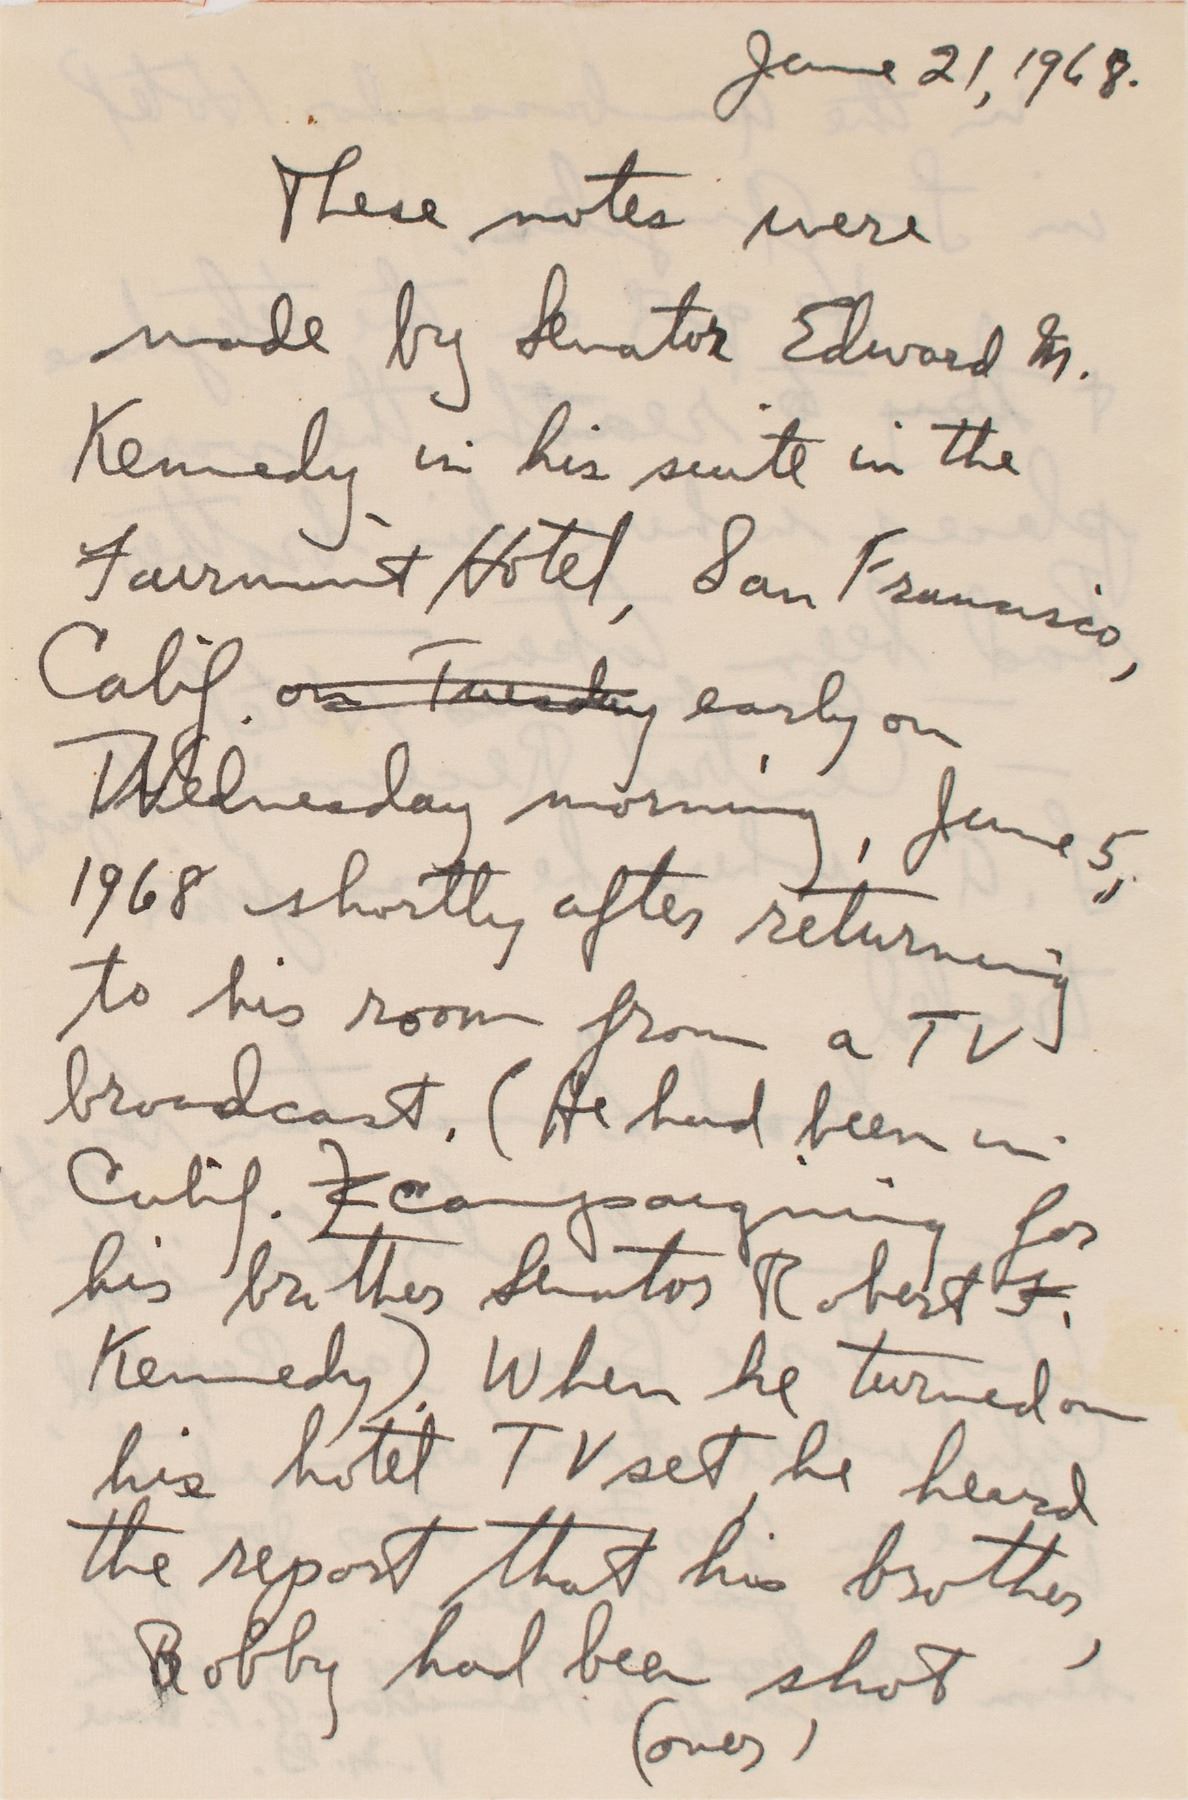 June 21, 1968.
These notes were
made by Senator Edward M.
Kennedy in his suite in the
Fairmont Hotel, San Francisco,
Calif. on Tuesday early on
Wednesday morning, June 5,
1968 shortly after returning
to his room from a TV
broadcast. (He had been in
Calif. campaigning for
his brother Senator Robert F.
Kennedy). When he turned on
his hotel TV set, he heard
the report that his brother,
Bobby had been shot
(over)